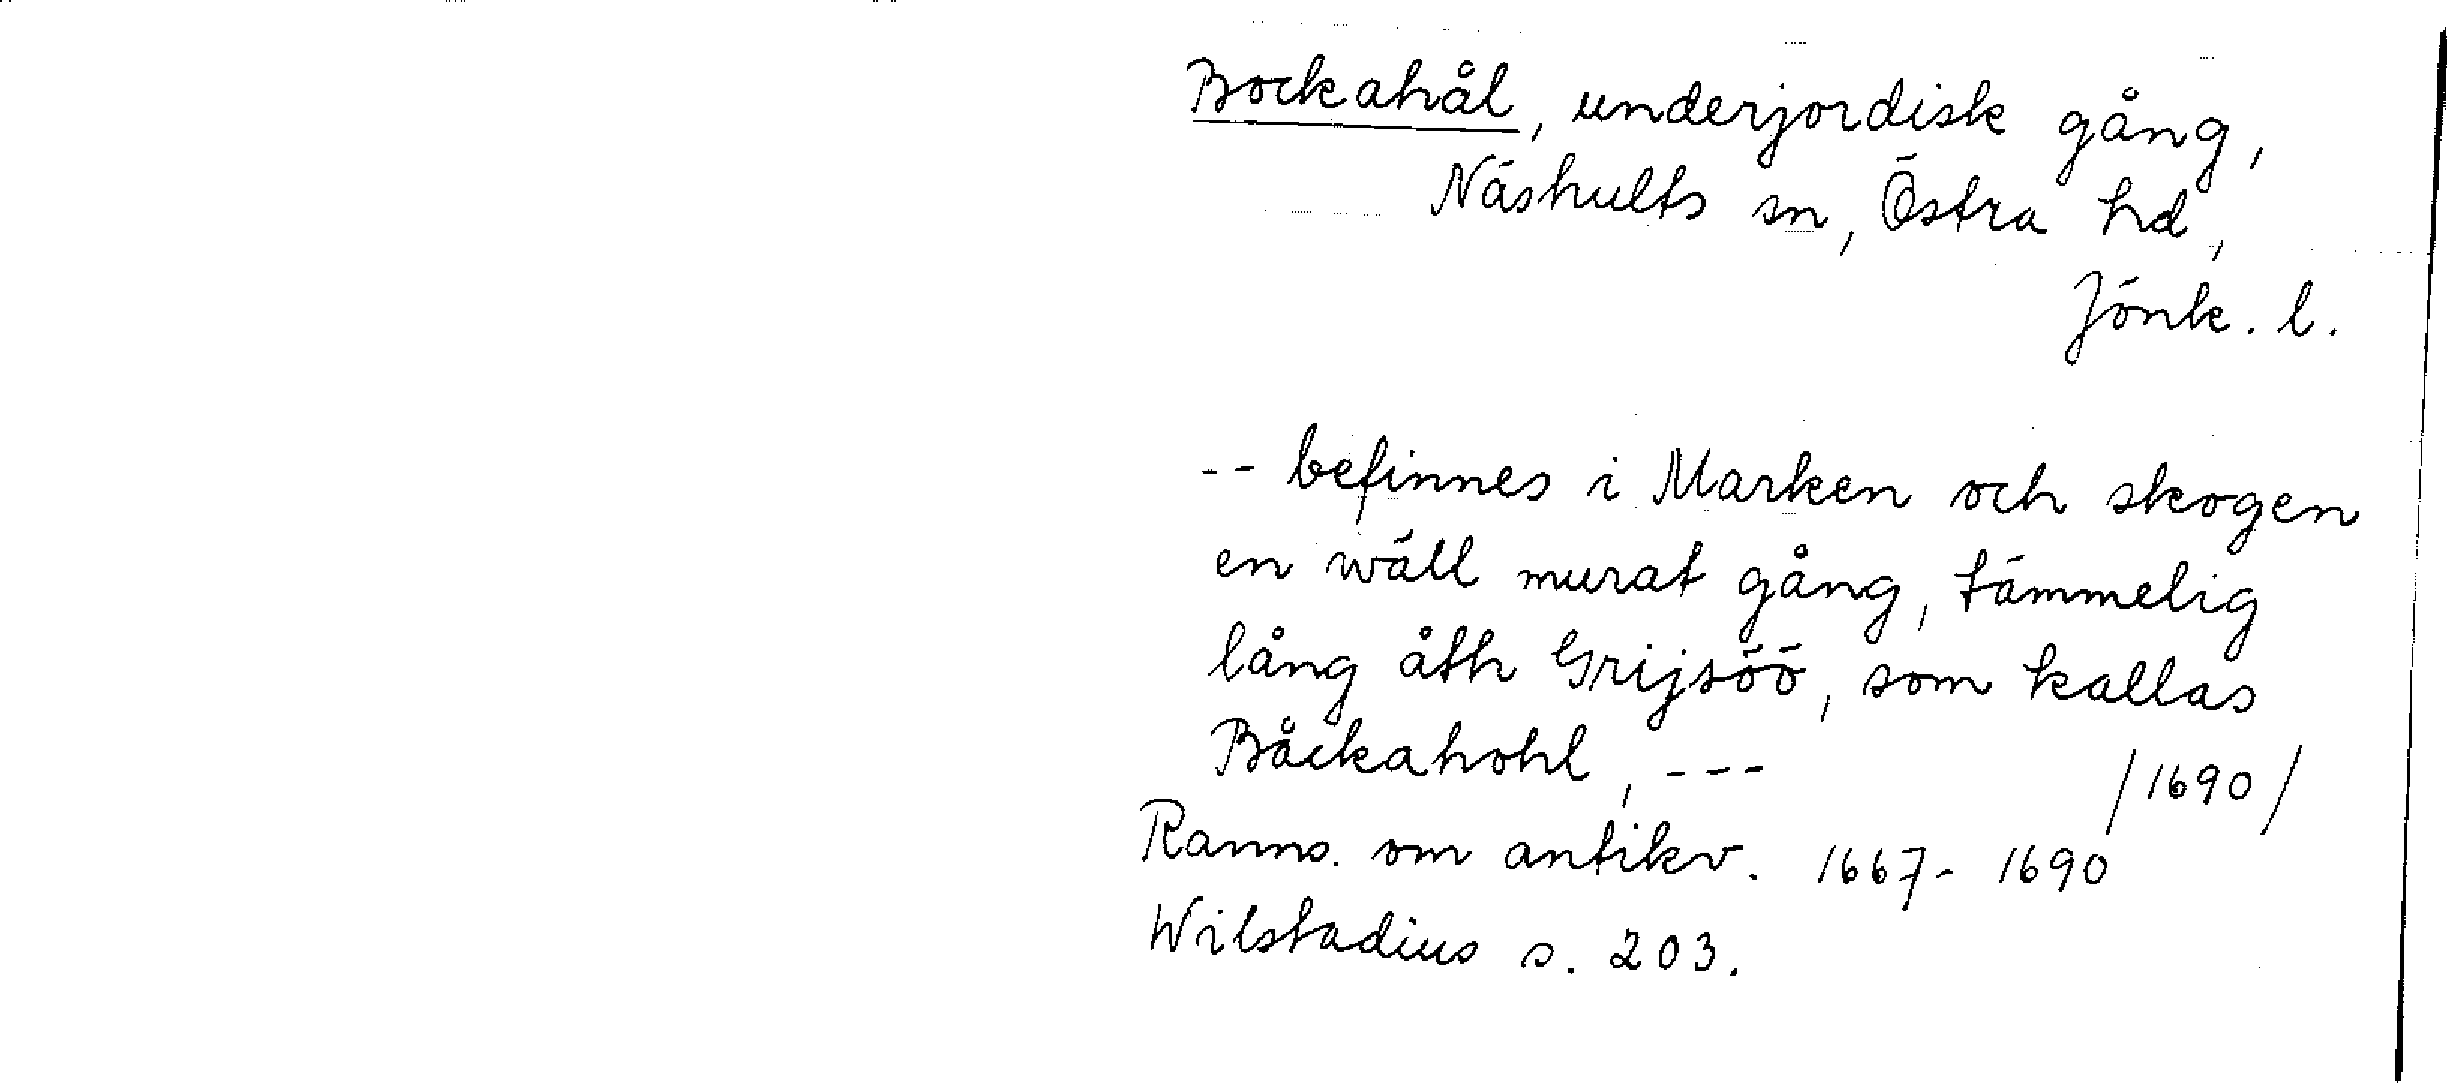 Bockahål, underjordisk gång,
Näshults sn, Östra hd,
Jönk. l.
-- befinnes i Marken och skogen
en wäll murat gång, tämmelig
lång åth Grijsöö, som kallas
Båckahohl, ---
/1690/
Ranns. om antikv. 1667-1690
Wilstadius s. 203.